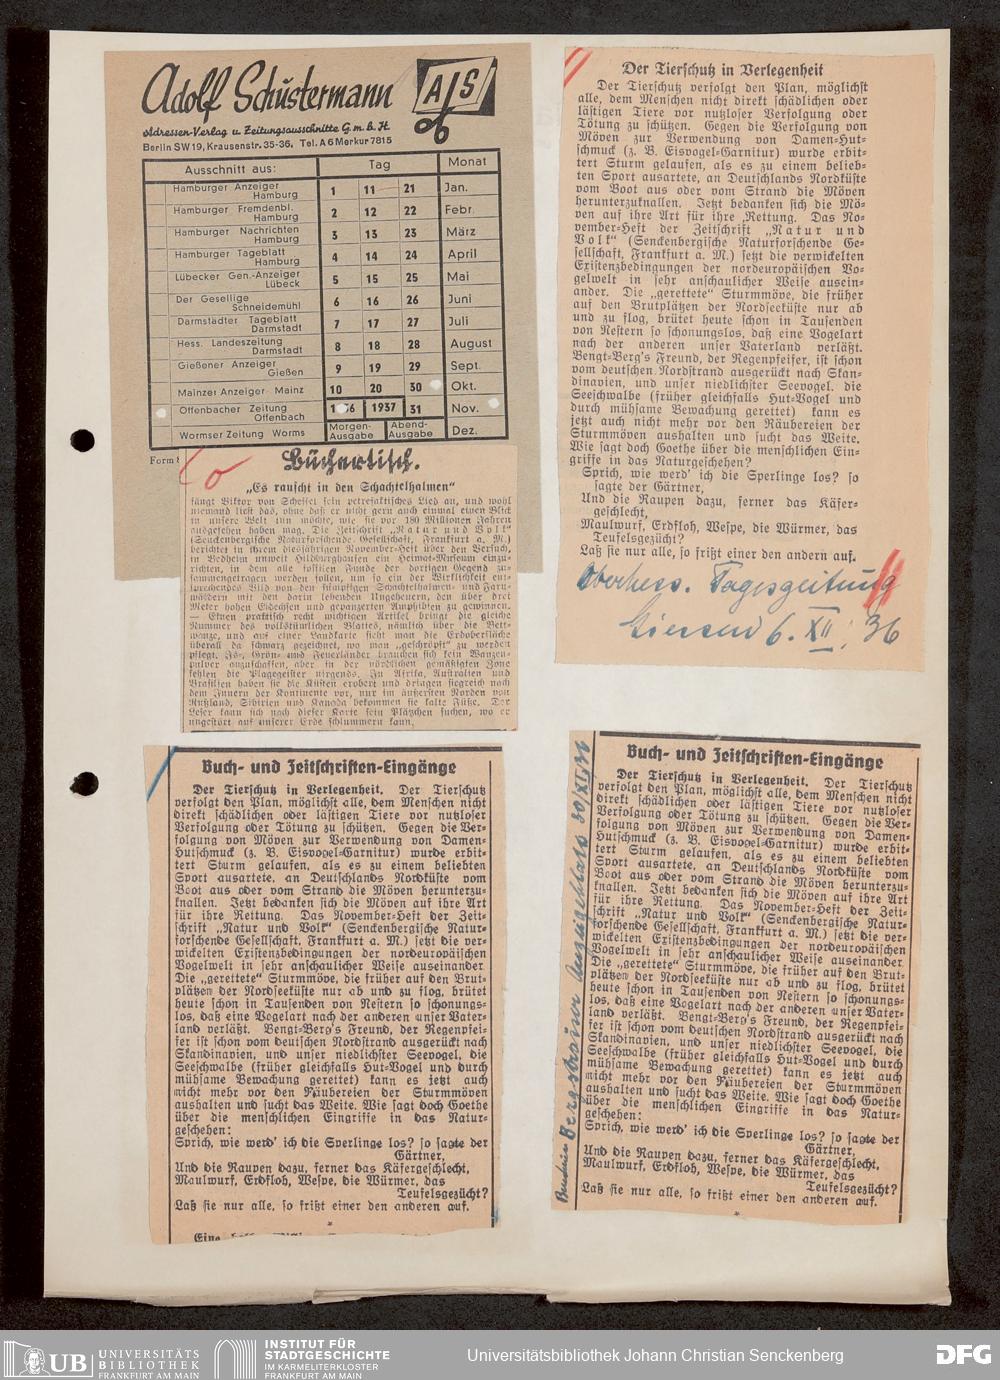 Adolf Schustermann
A/S
Adressen-Verlag u. Zeitungsausschnitte G.m.b.H.
Berlin SW19, Krausenstr. 35-36. Tel. A6 Merkur 7815
Ausschnitt aus: Tag Monat
Hamburger Anzeiger Hamburg 1 11 21 Jan.
Hamburger Fremdenbl. Hamburg 2 12 22 Febr.
Hamburger Nachrichten Hamburg 3 13 23 März
Hamburger Tageblatt Hamburg 4 14 24 April
Lübecker Gen.-Anzeiger Lübeck 5 15 25 Mai
Der Gesellige Schneidemühl 6 16 26 Juni
Darmstädter Tageblatt Darmstadt 7 17 27 Juli
Hess. Landeszeitung Darmstadt 8 18 28 August
Gießener Anzeiger Gießen 9 19 29 Sept.
Mainzer Anzeiger Mainz 10 20 30 Okt.
Offenbacher Zeitung Offenbach 1937 31 Nov.
Wormser Zeitung Worms Morgen-Ausgabe Abend-Ausgabe Dez.
Form
Büchertisch.
„Es rauscht in den Schachtelhalmen“
fängt Viktor von Scheffel sein petrefaktisches Lied an, und wohl
niemand liest das, ohne daß er nicht gern auch einmal einen Blick
in unsere Welt tun möchte, wie sie vor 180 Millionen Jahren
ausgesehen haben mag. Die Zeitschrift „Natur und Volk“
(Senckenbergische Naturforschende Gesellschaft, Frankfurt a. M.)
berichtet in ihrem diesjährigen November-Heft über den Versuch,
in Bedheim unweit Hildburghausen ein Heimat-Museum einzu-
richten, in dem alle fossilen Funde der dortigen Gegend zu-
sammengetragen werden sollen, um so ein der Wirklichkeit ent-
sprechendes Bild von den sumpfigen Schachtelhalmen- und Farn-
wäldern mit den darin lebenden Ungeheuern, den über drei
Meter hohen Eidechsen und gepanzerten Amphibien zu gewinnen.
— Einen praktisch recht wichtigen Artikel bringt die gleiche
Nummer des volkstümlichen Blattes, nämlich über die Bett-
wanze, und auf einer Landkarte sieht man die Erdoberfläche
überall da schwarz gezeichnet, wo man „geschröpft“ zu werden
pflegt. Is-, Grön- und Feuerländer brauchen sich kein Wanzen-
pulver anzuschaffen, aber in der nördlichen gemäßigten Zone
fehlen die Plagegeister nirgends. In Afrika, Australien und
Brasilien haben sie die Küsten erobert und dringen siegreich nach
dem Innern der Kontinente vor, nur im äußersten Norden von
Rußland, Sibirien und Kanada bekommen sie kalte Füße. Der
Leser kann sich nach dieser Karte sein Plätzchen suchen, wo er
ungestört auf unserer Erde schlummern kann.
Der Tierschutz in Verlegenheit
Der Tierschutz verfolgt den Plan, möglichst
alle, dem Menschen nicht direkt schädlichen oder
lästigen Tiere vor nutzloser Verfolgung oder
Tötung zu schützen. Gegen die Verfolgung von
Möven zur Verwendung von Damen-Hut-
schmuck (z. B. Eisvogel-Garnitur) wurde erbit-
tert Sturm gelaufen, als es zu einem belieb-
ten Sport ausartete, an Deutschlands Nordküste
vom Boot aus oder vom Strand die Möven
herunterzuknallen. Jetzt bedanken sich die Mö-
ven auf ihre Art für ihre Rettung. Das No-
vember-Heft der Zeitschrift „Natur und
Volk“ (Senckenbergische Naturforschende Ge-
sellschaft, Frankfurt a. M.) setzt die verwickelten
Existenzbedingungen der nordeuropäischen Vo-
gelwelt in sehr anschaulicher Weise ausein-
ander. Die „gerettete“ Sturmmöve, die früher
auf den Brutplätzen der Nordseeküste nur ab
und zu flog, brütet heute schon in Tausenden
von Nestern so schonungslos, daß eine Vogelart
nach der anderen unser Vaterland verläßt.
Bengt-Berg's Freund, der Regenpfeifer, ist schon
vom deutschen Nordstrand ausgerückt nach Skan-
dinavien, und unser niedlichster Seevogel, die
Seeschwalbe (früher gleichfalls Hut-Vogel und
durch mühsame Bewachung gerettet) kann es
jetzt auch nicht mehr vor den Räubereien der
Sturmmöven aushalten und sucht das Weite.
Wie sagt doch Goethe über die menschlichen Ein-
griffe in das Naturgeschehen?
Sprich, wie werd' ich die Sperlinge los? so
sagte der Gärtner,
Und die Raupen dazu, ferner das Käfer-
geschlecht,
Maulwurf, Erdfloh, Wespe, die Würmer, das
Teufelsgezücht?
Laß sie nur alle, so frißt einer den andern auf.
Oberhess. Tageszeitung
Giessen 6. XII. 36
Buch- und Zeitschriften-Eingänge
Der Tierschutz in Verlegenheit. Der Tierschutz
verfolgt den Plan, möglichst alle, dem Menschen nicht
direkt schädlichen oder lästigen Tiere vor nutzloser
Verfolgung oder Tötung zu schützen. Gegen die Ver-
folgung von Möven zur Verwendung von Damen-
Hutschmuck (z. B. Eisvogel-Garnitur) wurde erbit-
tert Sturm gelaufen, als es zu einem beliebten
Sport ausartete, an Deutschlands Nordküste vom
Boot aus oder vom Strand die Möven herunterzu-
knallen. Jetzt bedanken sich die Möven auf ihre Art
für ihre Rettung. Das November-Heft der Zeit-
schrift „Natur und Volk“ (Senckenbergische Natur-
forschende Gesellschaft, Frankfurt a. M.) setzt die ver-
wickelten Existenzbedingungen der nordeuropäischen
Vogelwelt in sehr anschaulicher Weise auseinander.
Die „gerettete“ Sturmmöve, die früher auf den Brut-
plätzen der Nordseeküste nur ab und zu flog, brütet
heute schon in Tausenden von Nestern so schonungs-
los, daß eine Vogelart nach der anderen unser Vater-
land verläßt. Bengt-Berg's Freund, der Regenpfei-
fer ist schon vom deutschen Nordstrand ausgerückt nach
Skandinavien, und unser niedlichster Seevogel, die
Seeschwalbe (früher gleichfalls Hut-Vogel und durch
mühsame Bewachung gerettet) kann es jetzt auch
nicht mehr vor den Räubereien der Sturmmöven
aushalten und sucht das Weite. Wie sagt doch Goethe
über die menschlichen Eingriffe in das Natur-
geschehen:
Sprich, wie werd' ich die Sperlinge los? so sagte der
Gärtner,
Und die Raupen dazu, ferner das Käfergeschlecht,
Maulwurf, Erdfloh, Wespe, die Würmer, das
Teufelsgezücht?
Laß sie nur alle, so frißt einer den anderen auf.
*
Eine
Bergsträsser Anzeigeblatt 30/XI/36
Buch- und Zeitschriften-Eingänge
Der Tierschutz in Verlegenheit. Der Tierschutz
verfolgt den Plan, möglichst alle, dem Menschen nicht
direkt schädlichen oder lästigen Tiere vor nutzloser
Verfolgung oder Tötung zu schützen. Gegen die Ver-
folgung von Möven zur Verwendung von Damen-
Hutschmuck (z. B. Eisvogel-Garnitur) wurde erbit-
tert Sturm gelaufen, als es zu einem beliebten
Sport ausartete, an Deutschlands Nordküste vom
Boot aus oder vom Strand die Möven herunterzu-
knallen. Jetzt bedanken sich die Möven auf ihre Art
für ihre Rettung. Das November-Heft der Zeit-
schrift „Natur und Volk“ (Senckenbergische Natur-
forschende Gesellschaft, Frankfurt a. M.) setzt die ver-
wickelten Existenzbedingungen der nordeuropäischen
Vogelwelt in sehr anschaulicher Weise auseinander.
Die „gerettete“ Sturmmöve, die früher auf den Brut-
plätzen der Nordseeküste nur ab und zu flog, brütet
heute schon in Tausenden von Nestern so schonungs-
los, daß eine Vogelart nach der anderen unser Vater-
land verläßt. Bengt-Berg's Freund, der Regenpfei-
fer ist schon vom deutschen Nordstrand ausgerückt nach
Skandinavien, und unser niedlichster Seevogel, die
Seeschwalbe (früher gleichfalls Hut-Vogel und durch
mühsame Bewachung gerettet) kann es jetzt auch
nicht mehr vor den Räubereien der Sturmmöven
aushalten und sucht das Weite. Wie sagt doch Goethe
über die menschlichen Eingriffe in das Natur-
geschehen:
Sprich, wie werd' ich die Sperlinge los? so sagte der
Gärtner,
Und die Raupen dazu, ferner das Käfergeschlecht,
Maulwurf, Erdfloh, Wespe, die Würmer, das
Teufelsgezücht?
Laß sie nur alle, so frißt einer den anderen auf.
*
UB UNIVERSITÄTS
BIBLIOTHEK
FRANKFURT AM MAIN
INSTITUT FÜR
STADTGESCHICHTE
IM KARMELITERKLOSTER
FRANKFURT AM MAIN
Universitätsbibliothek Johann Christian Senckenberg
DFG